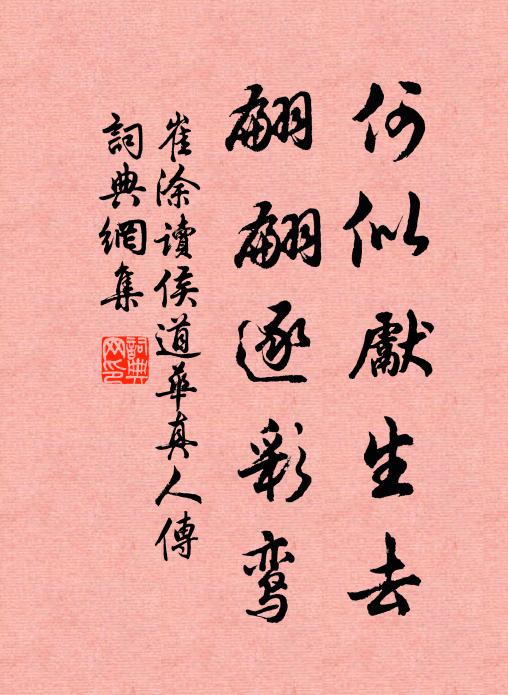 何似獻生去
翩翩逐彩鸾
崔涂讀侯道華真人傳
詞典網集
詞典網印